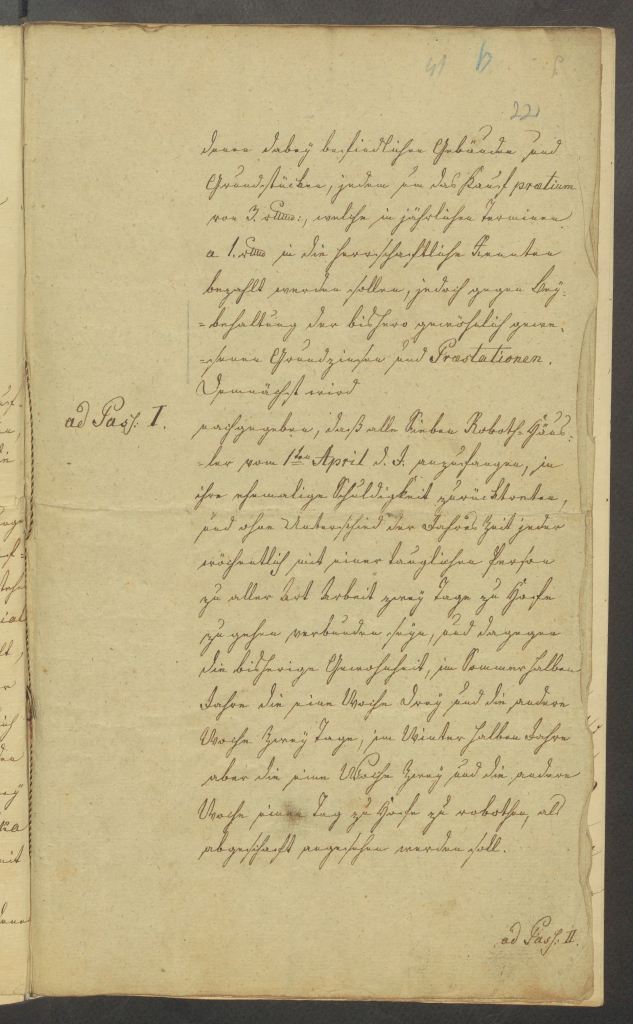 22
denen dabey befindlichen Gebäuden und
Grundstücken, jedem um das Kauf prætium
von 3. , welche in jährlichen Terminen
a 1. in die herrschaftliche Renten
bezahlt werden sollen, jedoch gegen Bey-
-behaltung der bishero gewöhnlich gewe-
-senen Grundzinsen und Præstationen.
Demnächst wird
ad Pass: I.
nachgegeben, daß alle Sieben Roboth-Häus-
-ler vom 1ten April d. J. anzufangen, in
ihre ehemalige Schuldigkeit zurücktreten,
und ohne Unterschied der Jahres Zeit jeder
wöchentlich mit einer tauglichen Person
zu aller Art Arbeit zwey Tage zu Hofe
zu gehen verbunden seyn, und dagegen
die bisherige Gewohnheit, im Sommer halben
Jahre die eine Woche Drey und die andere
Woche Zwey Tage, im Winter halben Jahre
aber die eine Woche Zwey und die andere
Woche einen Tag zu Hofe zu robothen, als
abgeschaft angesehen werden soll.
ad Pass: II.